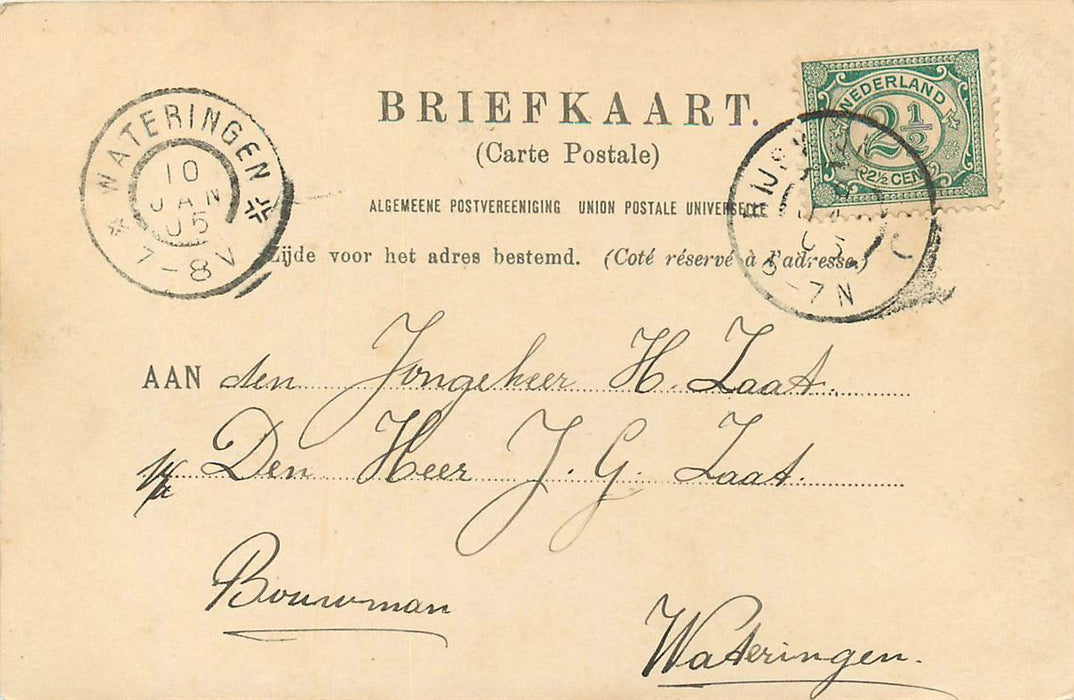 BRIEFKAART.
(Carte Postale)
ALGEMEENE POSTVEREENIGING UNION POSTALE UNIVERSELLE
Zijde voor het adres bestemd. (Coté réservé à l'adresse.)
WATERINGEN
10
JAN
05
7-8V
NEDERLAND
2½
2½ CENT
6-7N
AAN den Jongeheer H. Zaat.
Den Heer J. G. Zaat.
Bouwman
Wateringen.